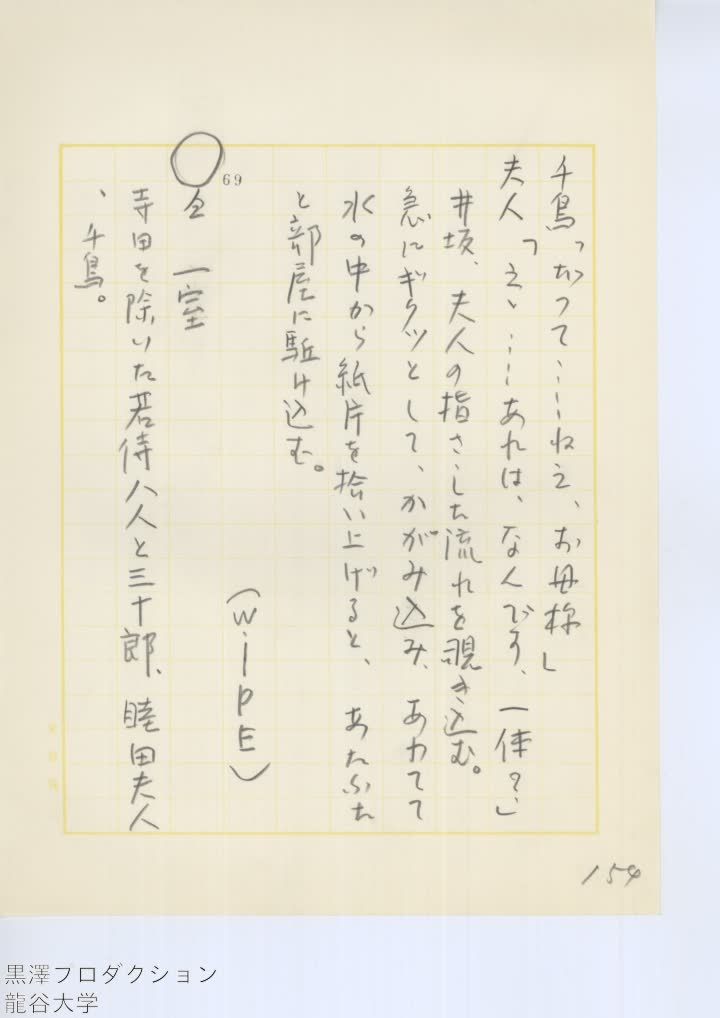 千鳥「だって……ねえ、お母様」
夫人「え、……あれは、なんです、一体?」
井坂、夫人の指さした流れを覗き込む。
急にギクッとして、かがみ込み、あわてて
水の中から紙片を拾い上げると、あたふた
と部屋に駈け込む。
(WIPE)
69
仝 一室
寺田を除いた若侍八人と三十郎、睦田夫人
、千鳥。
154
黒澤プロダクション
龍谷大学